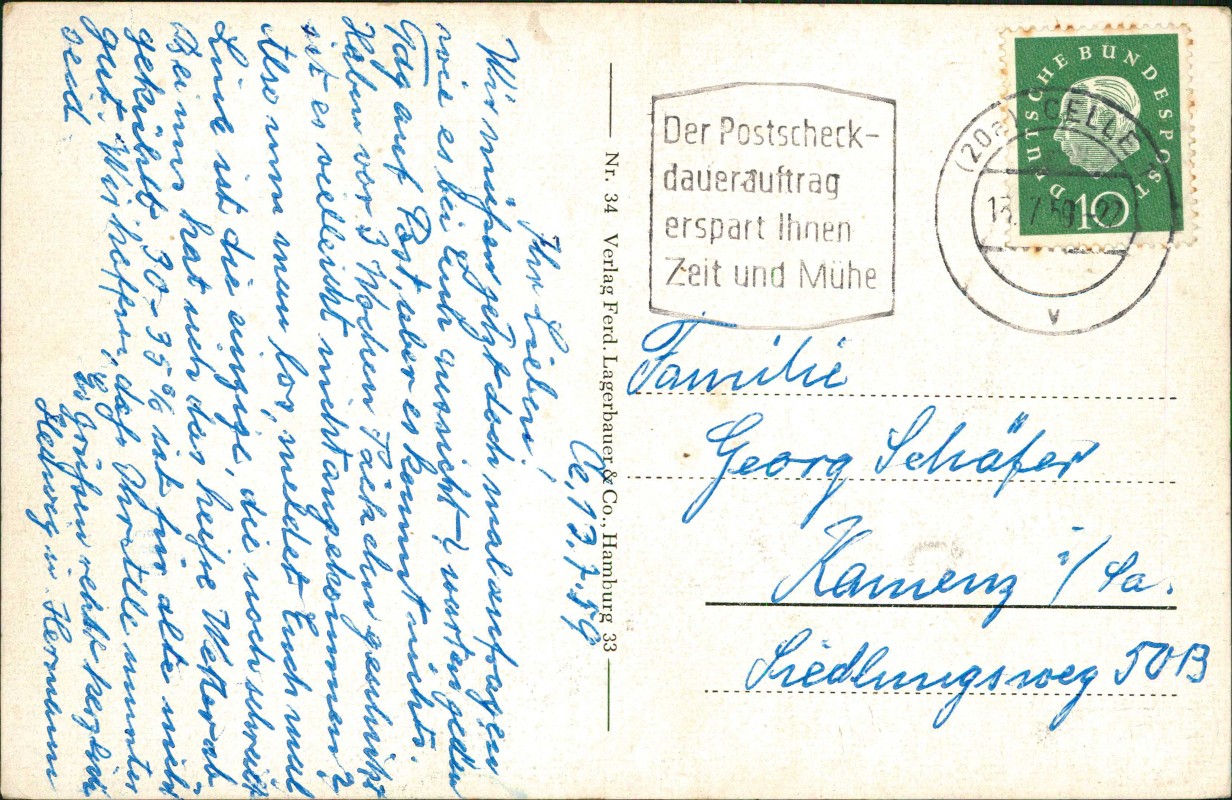 Ce, 13.7.59
Ihr Lieben!
Wir müssen jetzt doch mal anfragen
wie es bei Euch aussieht? warten jeden
Tag auf Post, aber es kommt nichts.
Haben vor 3 Wochen Päckchen geschickt
ist es vielleicht nicht angekommen?
Also nun man los, meldet Euch mal
Line ist die einzige, die noch schreibt
Bei uns hat sich das heiße Wetter ab
gekühlt 30-35% ist für alte nicht
gut. Wir hoffen, daß Ihr alle munter
seid.
Es grüßen recht herzlich
Hedwig u. Hermann
Nr. 34 Verlag Ferd. Lagerbauer & Co., Hamburg 33
Der Postscheck-
dauerauftrag
erspart Ihnen
Zeit und Mühe
(20a) CELLE
13.7.59-22
v
DEUTSCHE BUNDESPOST
10
Familie
Georg Schäfer
Kamenz i/Sa.
Siedlungsweg 50B